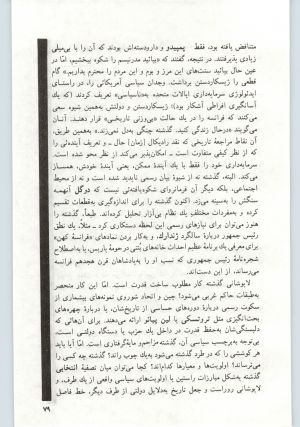 متناقض یافته بود. فقط پمپیدو و دارودسته‌اش بودند که آن را با بی‌میلی
زیادی پذیرفتند. در نتیجه، گفتند که «بیائید مدرنیسم را شکوه ببخشیم، امّا در
عین حال بیائید سنت‌های این مرز و بوم و این مردم را محترم بداریم.» گام
قطعی را ژیسکاردستن برداشت. وجدان سیاسی آمریکائی را، در راستای
ایدئولوژی سرمایه‌داری ایالات متحده به«ناسیاسی» تعریف کردند (که یك
آسانگیری افراطی آشکار بود)؛ ژیسکاردستن و دولتش به‌همین شیوه سعی
می‌کنند که فرانسه را در یك حالت «بی‌وزنی تاریخی» قرار دهند. آنان
می‌گویند «درحال زندگی کنید. گذشته چنگی به‌دل نمی‌زند.» به‌همین طریق،
آن نقاط مراجعهٔ تاریخی که نقد رادیکال (زمان) حال ـ و تعریف آینده‌ئی را
که از نظر کیفی متفاوت است ـ امکان‌پذیر می‌کند از نظر محو شده است.
سرمایه‌داری خود را فقط با یك آیندهٔ ممکن، یعنی آیندهٔ خودش، همساز
می‌کند. البته، گذشته نه از شیوهٔ بیان رسمی ناپدید شده است و نه از محیط
اجتماعی، بلکه دیگر آن فرمانروای شکوه‌یافته‌ئی نیست که دوگل انهمه
سنگش را به‌سینه می‌زد. اکنون، گذشته را برای اندازه‌گیری به‌قطعات تقسیم
کرده و به‌مفردات مختلف یك نظام بی‌آزار تحلیل کرده‌اند. طبعاً، گذشته را
هنوز می‌توان برای نیازهای رسمی این لحظه دستکاری کرد ـ مثلا، یك نطق
رئیس جمهوری دربارهٔ سالگرد ژندارك، و به‌کار بردن نمادهای «فرانسهٔ کهن»
برای معرفی یك برنامهٔ عظیم احداث خانه‌های بتنی درحومهٔ پاریس، یا به‌اصطلاح
شجره‌نامهٔ رئیس جمهوری که نسب او را به‌پادشاهان قرن هجدهم فرانسه
می‌رساند، از این دست‌اند.
لاپوشانی گذشته کار مطلوب ساخت قدرت است. امّا این کار منحصر
به‌طبقات حاکم غربی می‌شود؟ چین و اتحاد شوروی نمونه‌های بیشماری از
سکوت رسمی دربارهٔ دوره‌های حساس از تاریخ‌شان، یا دربارهٔ چهره‌های
بحث‌انگیزی مثل تروتسکی یا لین پیائو ارائه می‌دهند. برای آن‌هائی که
دلبستگی‌شان به‌حفظ قدرت در داخل یك حزب یا دستگاه دولتی است،
بی‌توجه به‌برچسب سیاسی آن، گذشته مزاحم و مایه‌گرفتاری است. امّا آیا باید
هر کوششی را که در طرد گذشته می‌شود به‌یك چوب راند؟ گذشته چه کسی را
می‌ترساند؟ اولویت‌ها و معیارها کدام‌اند؟ کجا می‌توان میان تصفیهٔ انتخابی
گذشته به‌شکل مبارزات راستین یا اولویت‌های سیاسی واقع از یك طرف، و
لاپوشانی زوراست و جعل تاریخ به‌دلایل دولتی از طرف دیگر، خط فاصل
۷۹